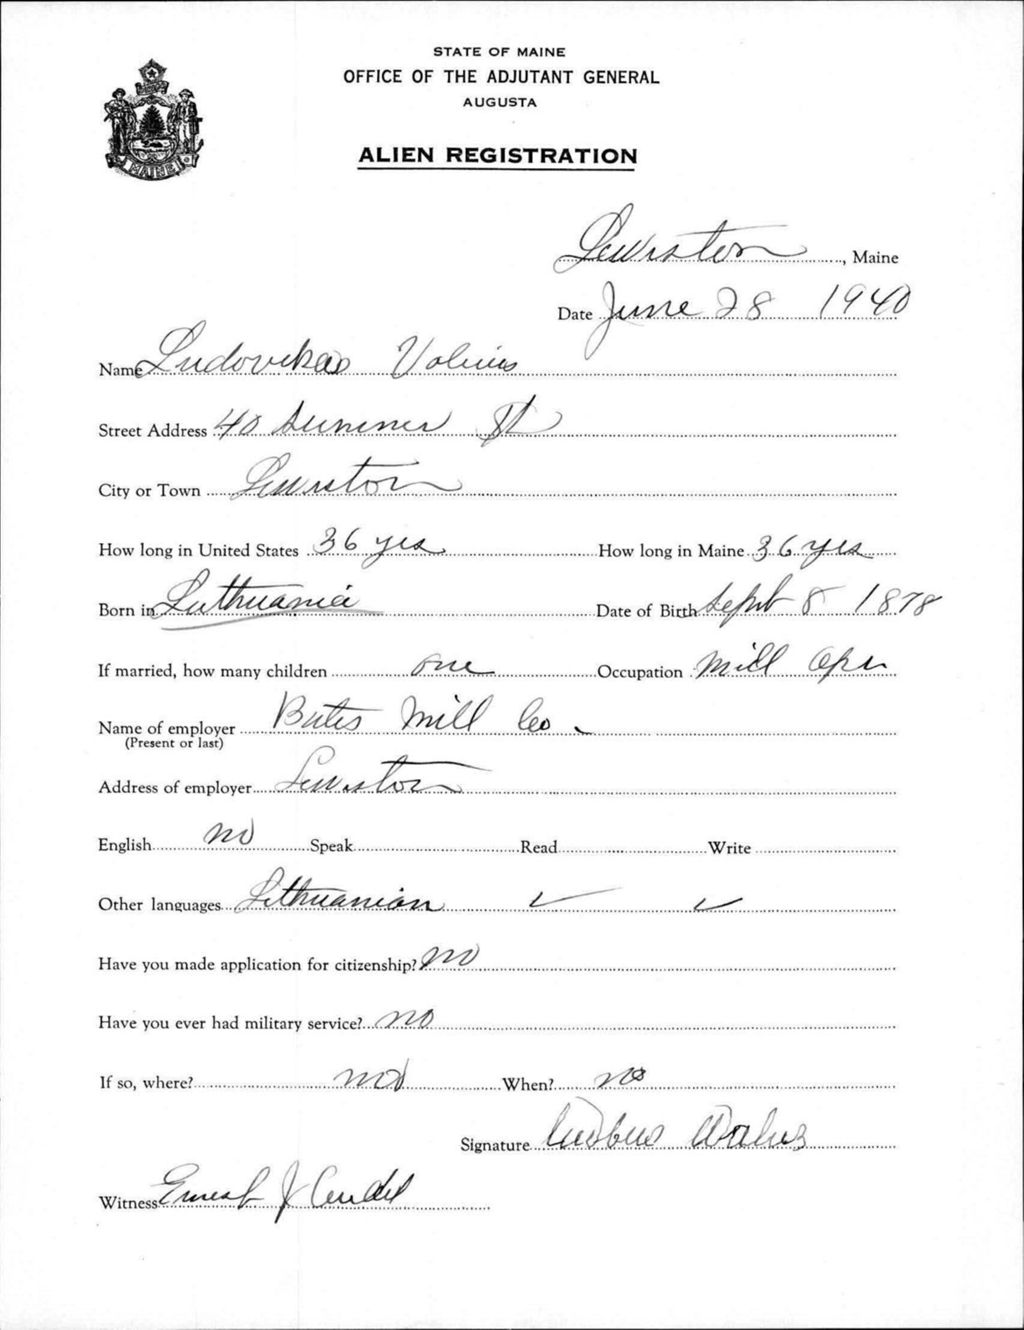 STATE OF MAINE
OFFICE OF THE ADJUTANT GENERAL
AUGUSTA
MAINE
ALIEN REGISTRATION
Lewiston, Maine
Date June 28 1940
Name Ludovikas
Street Address 40 Summer St
City or Town Lewiston
How long in United States 36 yrs How long in Maine 36 yrs
Born in Lithuania Date of Birth Sept 8 1878
If married, how many children one Occupation Mill Opr
Name of employer Bates Mill Co
(Present or last)
Address of employer Lewiston
English no Speak Read Write
Other languages Lithuanian ✓ ✓
Have you made application for citizenship? no
Have you ever had military service? no
If so, where? no When? no
Signature
Witness Ernest J